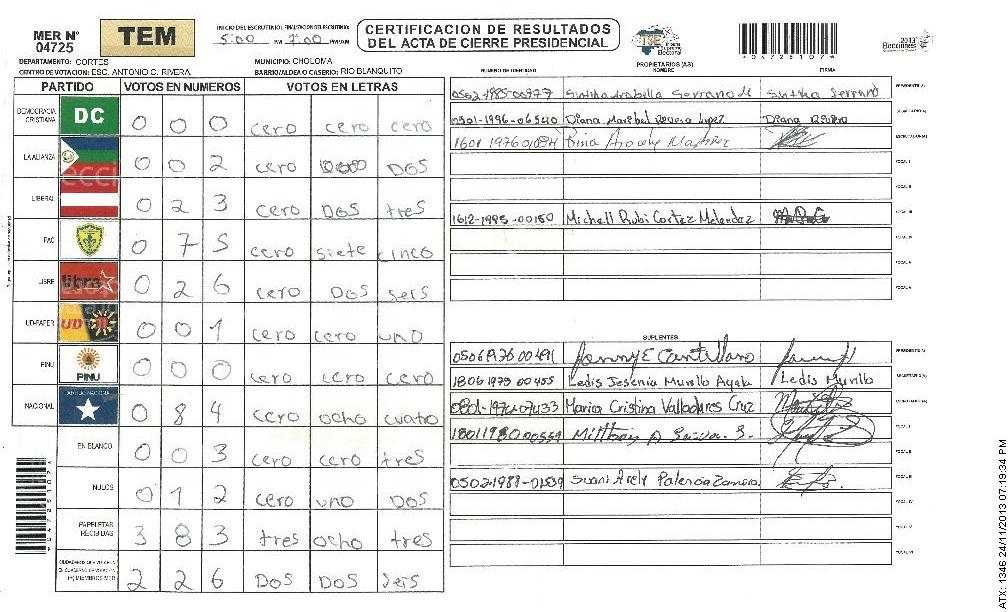 MER Nº 04725
TEM
INICIO DEL ESCRUTINIO: FINALIZACION DEL ESCRUTINIO:
5:00 PM 7:00 PM/AM
CERTIFICACION DE RESULTADOS
DEL ACTA DE CIERRE PRESIDENCIAL
TSE Tribunal Supremo Electoral
2013 Elecciones
*04725107*
DEPARTAMENTO: CORTES
MUNICIPIO: CHOLOMA
CENTRO DE VOTACION: ESC. ANTONIO C. RIVERA
BARRIO/ALDEA O CASERIO: RIO BLANQUITO
PARTIDO VOTOS EN NUMEROS VOTOS EN LETRAS
DEMOCRACIA CRISTIANA DC 0 0 0 cero cero cero
LA ALIANZA 0 0 2 cero DOS
LIBERAL 0 2 3 cero DOS tres
PAC 0 7 5 cero siete cinco
LIBRE libre 0 2 6 cero DOS seis
UD-FAPER UD 0 0 1 cero cero uno
PINU PINU 0 0 0 cero cero cero
NACIONAL PARTIDO NACIONAL 0 8 4 cero ocho cuatro
EN BLANCO 0 0 3 cero cero tres
NULOS 0 1 2 cero uno DOS
PAPELETAS RECIBIDAS 3 8 3 tres ocho tres
CIUDADANOS QUE VOTARON EN CUADERNO DE VOTACION 2 2 6 DOS DOS seis
*04725107*
NUMERO DE IDENTIDAD PROPIETARIOS (AS) NOMBRE FIRMA
0502-1985-00977 Serrano Sintha Serrano PRESIDENTE(A)
0501-1996-06540 Diana Maribel Rivera Lopez Diana Rivera SECRETARIO(A)
Martinez ESCRUTADOR(A)
VOCAL I
VOCAL II
1612-1995-00150 Michell Rubi Cortez Melendez VOCAL III
VOCAL IV
VOCAL V
SUPLENTES
Jenny E Cantillano PRESIDENTE(A)
1806 1973 00455 Ledis Jesenia Murillo Ayala Ledis Murillo SECRETARIO(A)
0801-1974-07433 Maria Cristina Valladares Cruz ESCRUTADOR(A)
VOCAL I
VOCAL II
0502-1988-01539 Suani Arely Palencia Zamora VOCAL III
VOCAL IV
VOCAL V
VOCAL VI
ATX: 1346 24/11/2013 07:19:34 PM